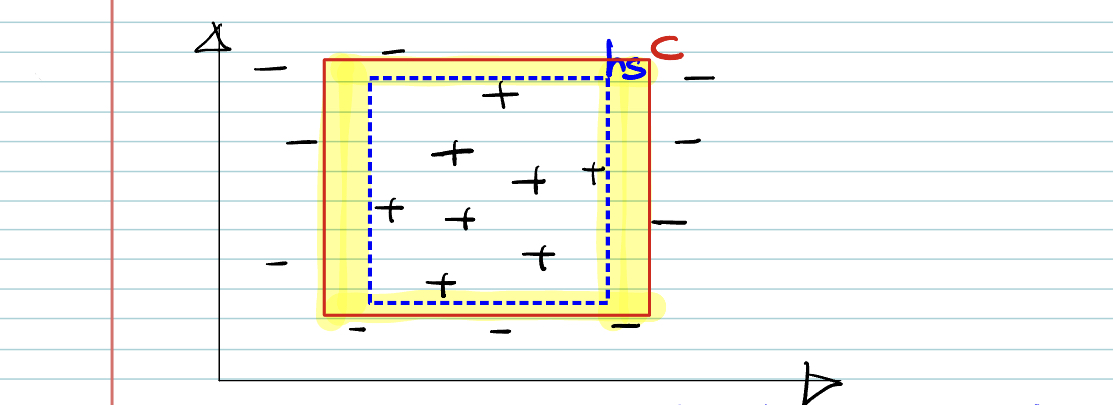 hs C